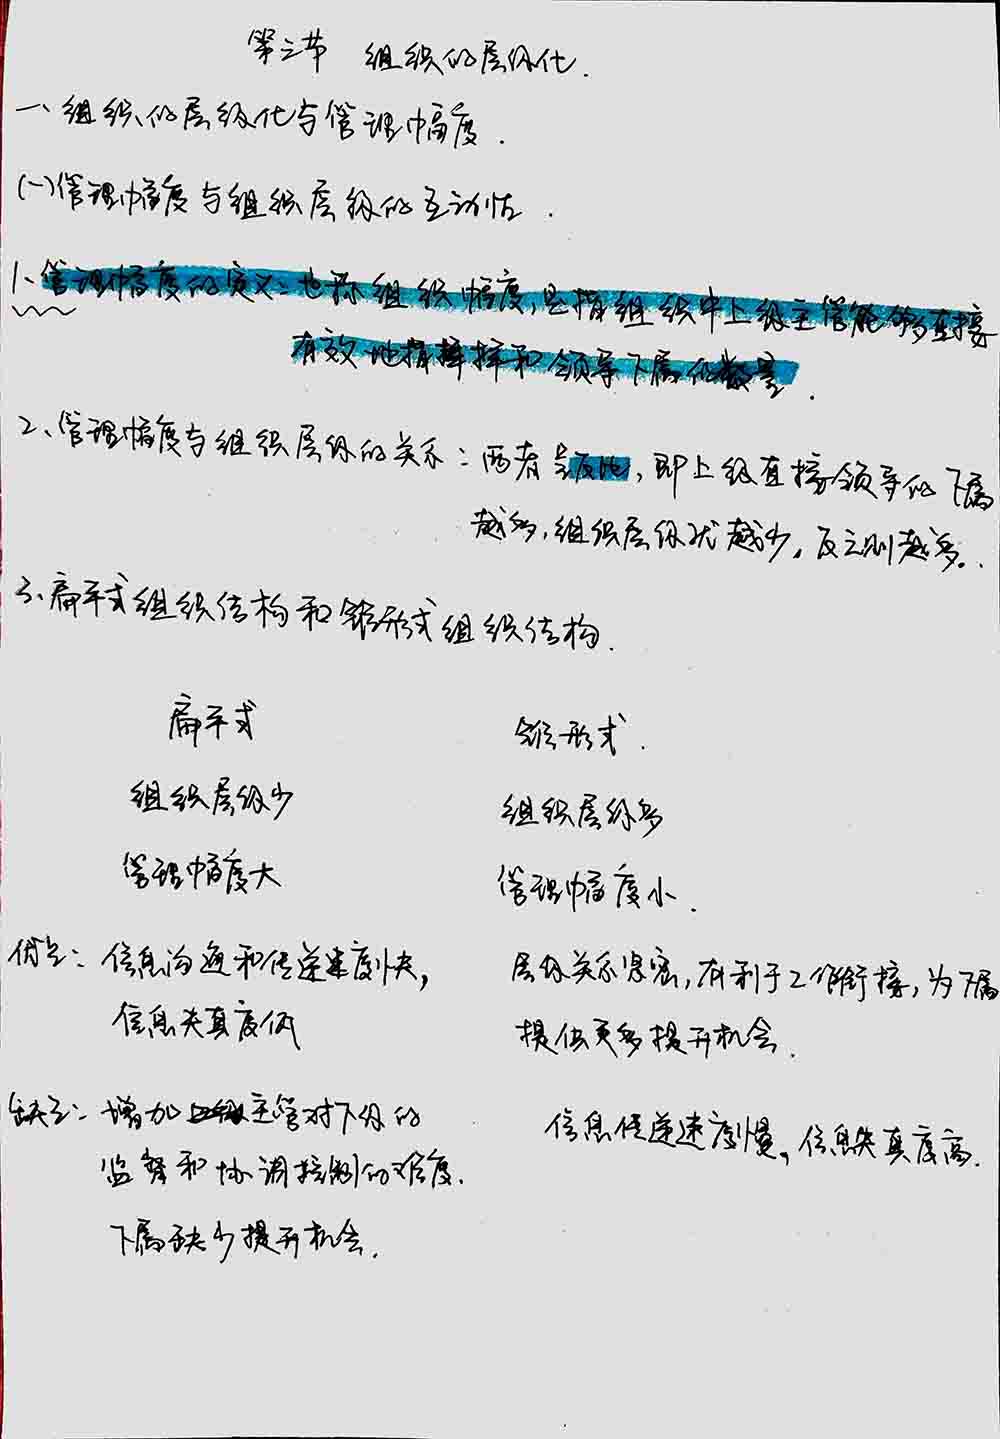 第三节 组织的层级化.
一、组织的层级化与管理幅度.
(一)管理幅度与组织层级的互动性.
1、管理幅度的定义:也称组织幅度,是指组织中上级主管能够直接
有效地指挥和领导下属的数量.
2、管理幅度与组织层级的关系:两者呈反比,即上级直接领导的下属
越多,组织层级就越少,反之则越多.
3、扁平式组织结构和锥形式组织结构.
扁平式 锥形式.
组织层级少 组织层级多
管理幅度大 管理幅度小.
优点:信息沟通和传递速度快, 层级关系紧密,有利于工作衔接,为下属
信息失真度低 提供更多提升机会.
缺点:增加主管对下级的 信息传递速度慢,信息失真度高.
监督和协调控制的难度.
下属缺少提升机会.